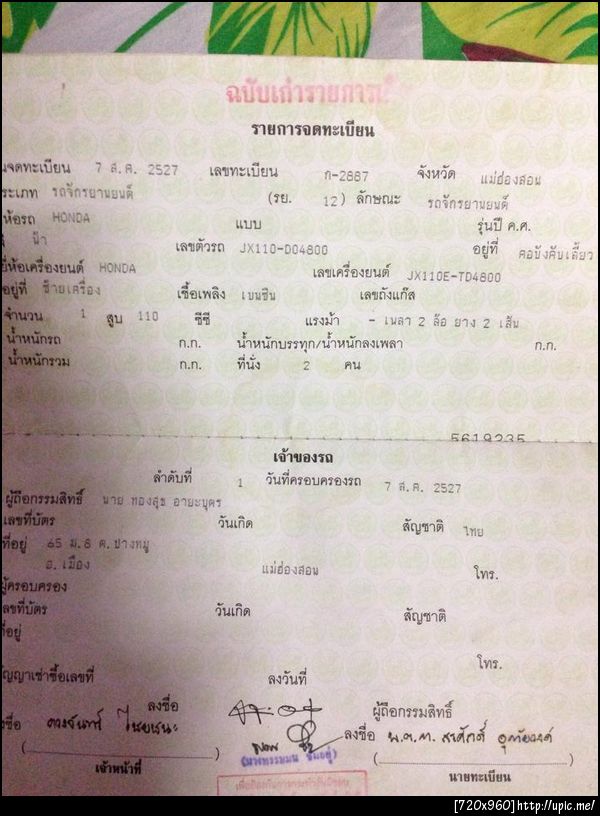 ฉบับเก่ารายการ
รายการจดทะเบียน
นจดทะเบียน 7 ส.ค. 2527 เลขทะเบียน ก-2887 จังหวัด แม่ฮ่องสอน
ระเภท รถจักรยานยนต์ (รย. 12) ลักษณะ รถจักรยานยนต์
ห้อรถ HONDA แบบ รุ่นปี ค.ศ.
น้ำ เลขตัวรถ JX110-D04800 อยู่ที่ คอบังคับเลี้ยว
ยี่ห้อเครื่องยนต์ HONDA เลขเครื่องยนต์ JX110E-TD4800
อยู่ที่ ซ้ายเครื่อง เชื้อเพลิง เบนซิน เลขถังแก๊ส
จำนวน 1 สูบ 110 ซีซี แรงม้า - เพลา 2 ล้อ ยาง 2 เส้น
น้ำหนักรถ ก.ก. น้ำหนักบรรทุก/น้ำหนักลงเพลา ก.ก.
น้ำหนักรวม ก.ก. ที่นั่ง 2 คน
5619235
เจ้าของรถ
ลำดับที่ 1 วันที่ครอบครองรถ 7 ส.ค. 2527
ผู้ถือกรรมสิทธิ์ นาย ทองสุข อายะบุตร
เลขที่บัตร วันเกิด สัญชาติ ไทย
ที่อยู่ 65 ม.8 ต.ปางหมู
อ.เมือง แม่ฮ่องสอน โทร.
ผู้ครอบครอง
ลขที่บัตร วันเกิด สัญชาติ
ที่อยู่
โทร.
ัญญาเช่าซื้อเลขที่ ลงวันที่
ลงชื่อ ผู้ถือกรรมสิทธิ์
งชื่อ ดวงจันทร์ ลงชื่อ พ.ต.ท.
เจ้าหน้าที่ นายทะเบียน
[720x960]http://upic.me/